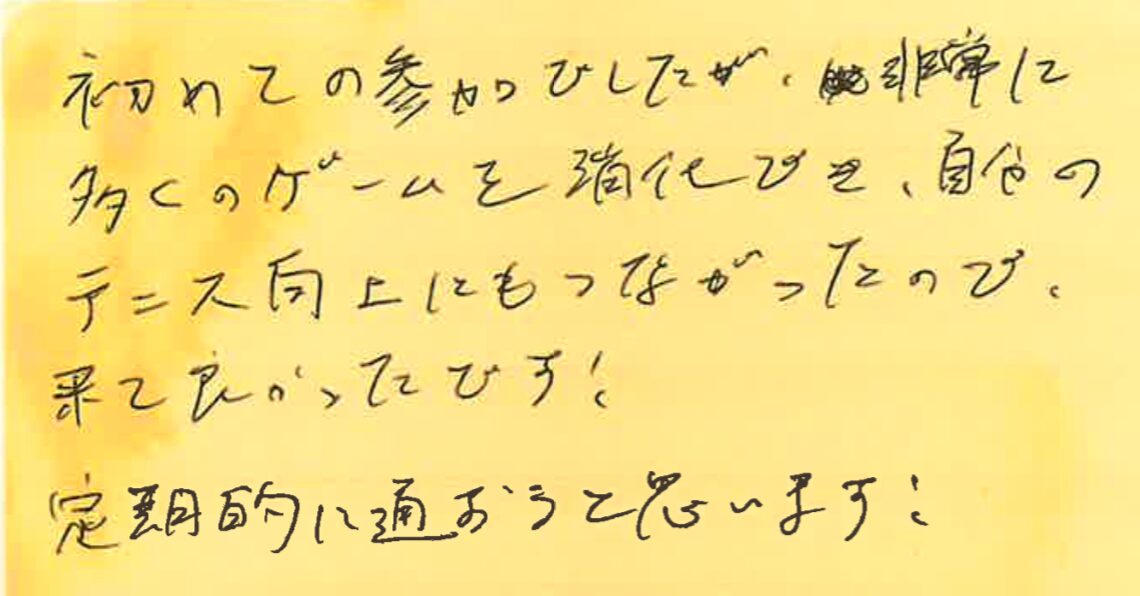 初めての参加でしたが、非常に
多くのゲームを消化でき、自分の
テニス向上にもつながったので、
来て良かったです!
定期的に通おうと思います!